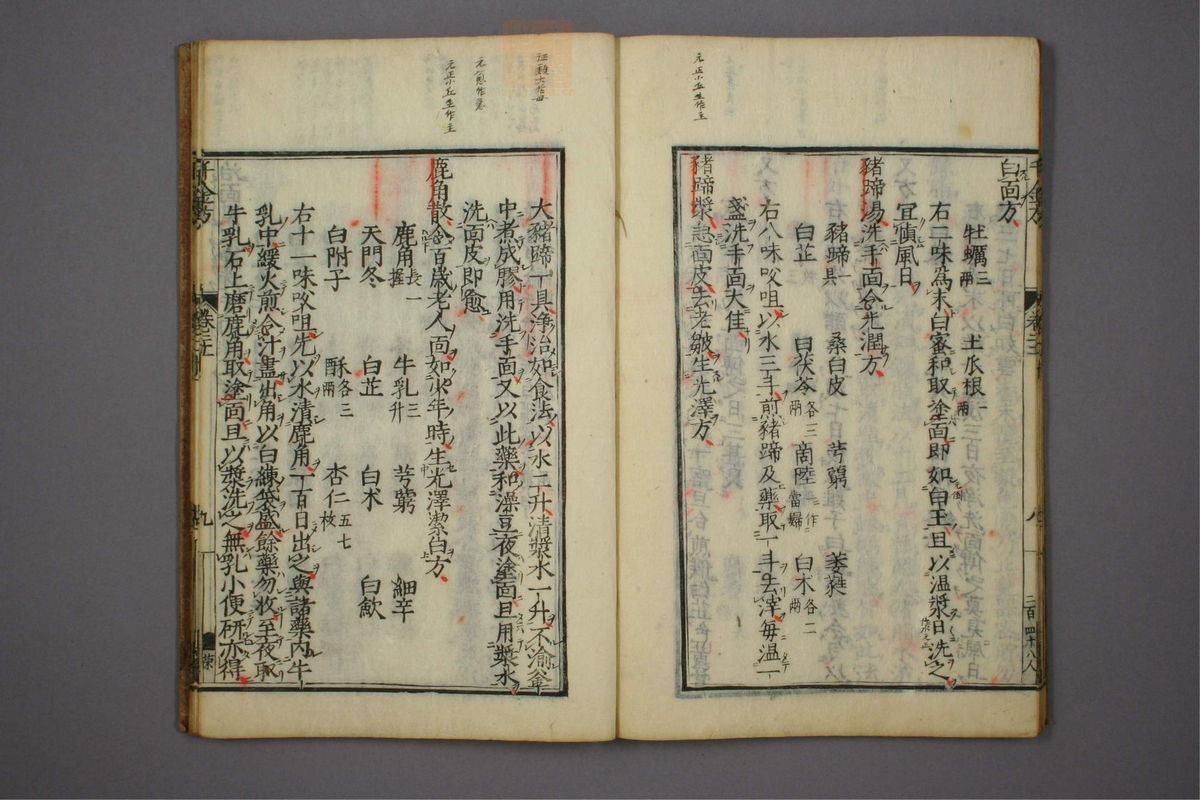 元正小丘生作主
白面方
牡蠣三兩 土瓜根一兩
右二味為末白蜜和取塗面即如玉且以温漿日洗之
宜慎風日
豬蹄湯洗手面令光潤方
豬蹄一具 桑白皮 芎藭 萎蕤
白芷 白茯苓各三兩 商陸一作當歸 白朮各二兩
右八味㕮咀以水三斗煎豬蹄及藥取一斗去滓每温一
盞洗手面大佳
豬蹄漿急面皮去老皺生光澤方
大豬蹄一具淨治如食法以水二升清漿水一升不渝釜
中煮成膠用洗手面又以此藥和澡豆夜塗面旦用漿水
洗面皮即急
鹿角散令百歲老人面如少年時生光澤潔白方
鹿角長一握 牛乳三升 芎藭 細辛
天門冬 白芷 白朮 白蘞
白附子 酥各三兩 杏仁五七枚
右十一味㕮咀先以水漬鹿角一百日出之與諸藥內牛
乳中緩火煎令汁盡出角以白練袋盛餘藥勿收至夜取
牛乳石上磨鹿角取塗面旦以漿洗之無乳小便研亦得
千金方
卷之
九